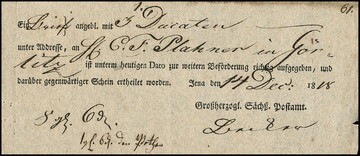 1. 61.
Ein Brief angebl. mit 3 Ducaten
unter Addresse, an H. C. F. Plahner in Gör-
litz ist unterm heutigen Dato zur weitern Beförderung richtig aufgegeben, und
darüber gegenwärtiger Schein ertheilet worden. Jena den 14 Dec. 1818
Großherzogl. Sächs. Postamt.
5 gl. 6 d. Becker
1 gl. 6 d. den